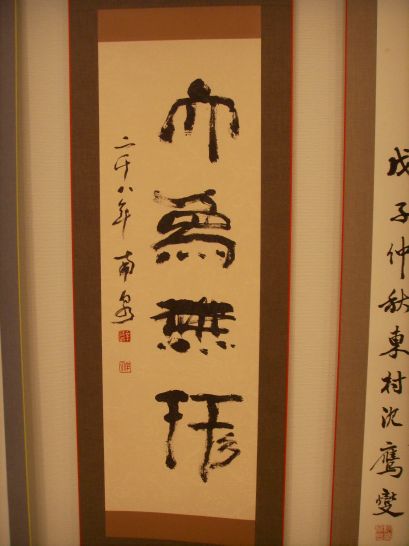 戊子仲秋東村沈鷹燮
大象無形
二千八年 南泉